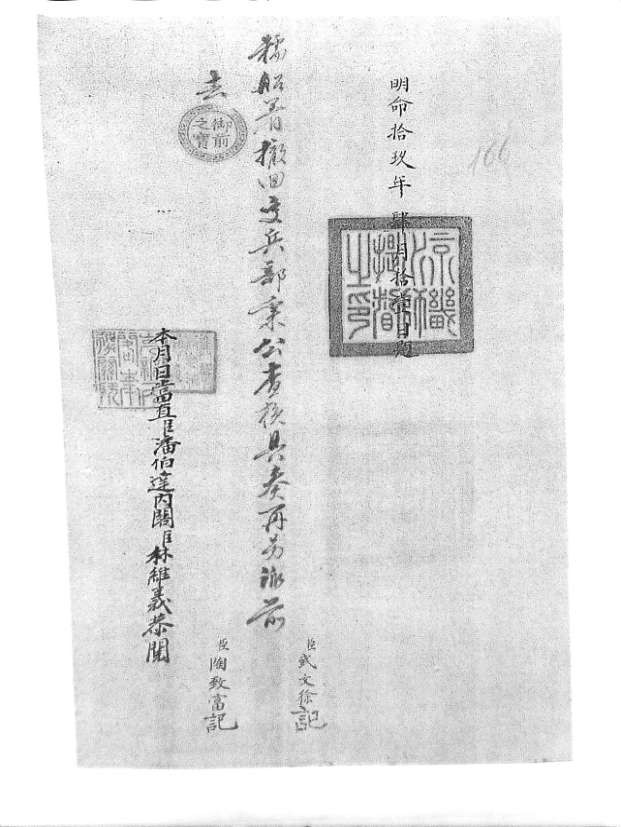 明命拾玖年肆月拾 日題
京畿
提督
之印
166
臣武文徐記
臣陶致富記
船着撤回交兵部秉公查核具奏再另派前
去
御前之寶
本月日臣當直臣潘伯達內閣臣林維義恭閱